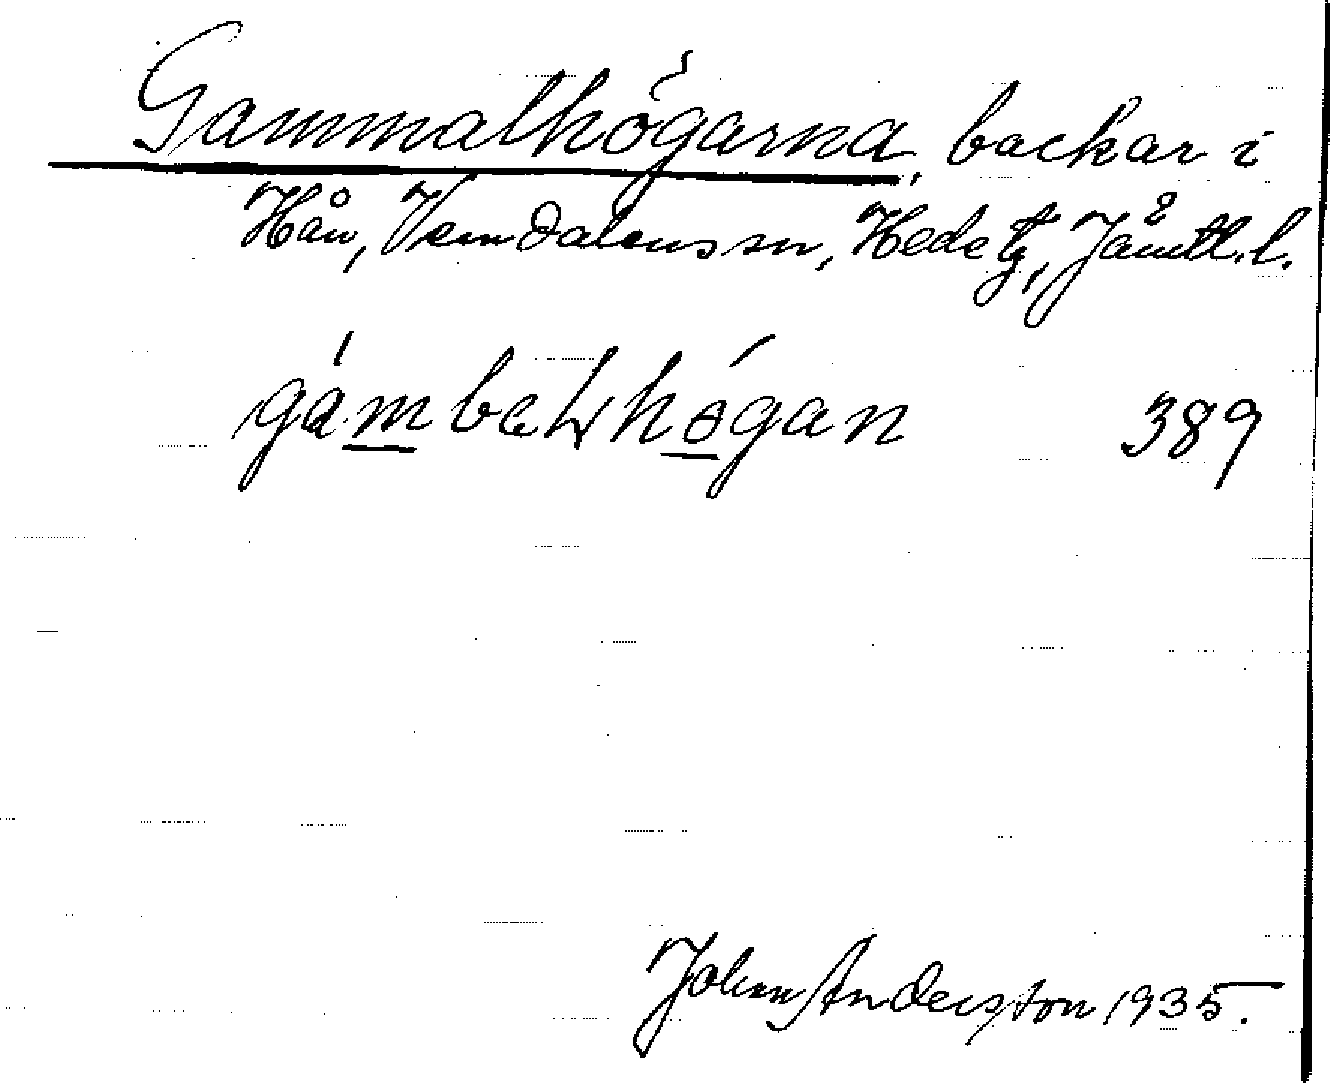 Gammalhögarna, backar i
Hån, Vemdalens sn, Hede tg, Jämtl. l.
gámbeLhógan 389
John Andersson 1935.